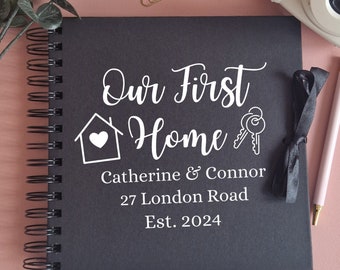 Our First
Home
Catherine & Connor
27 London Road
Est. 2024